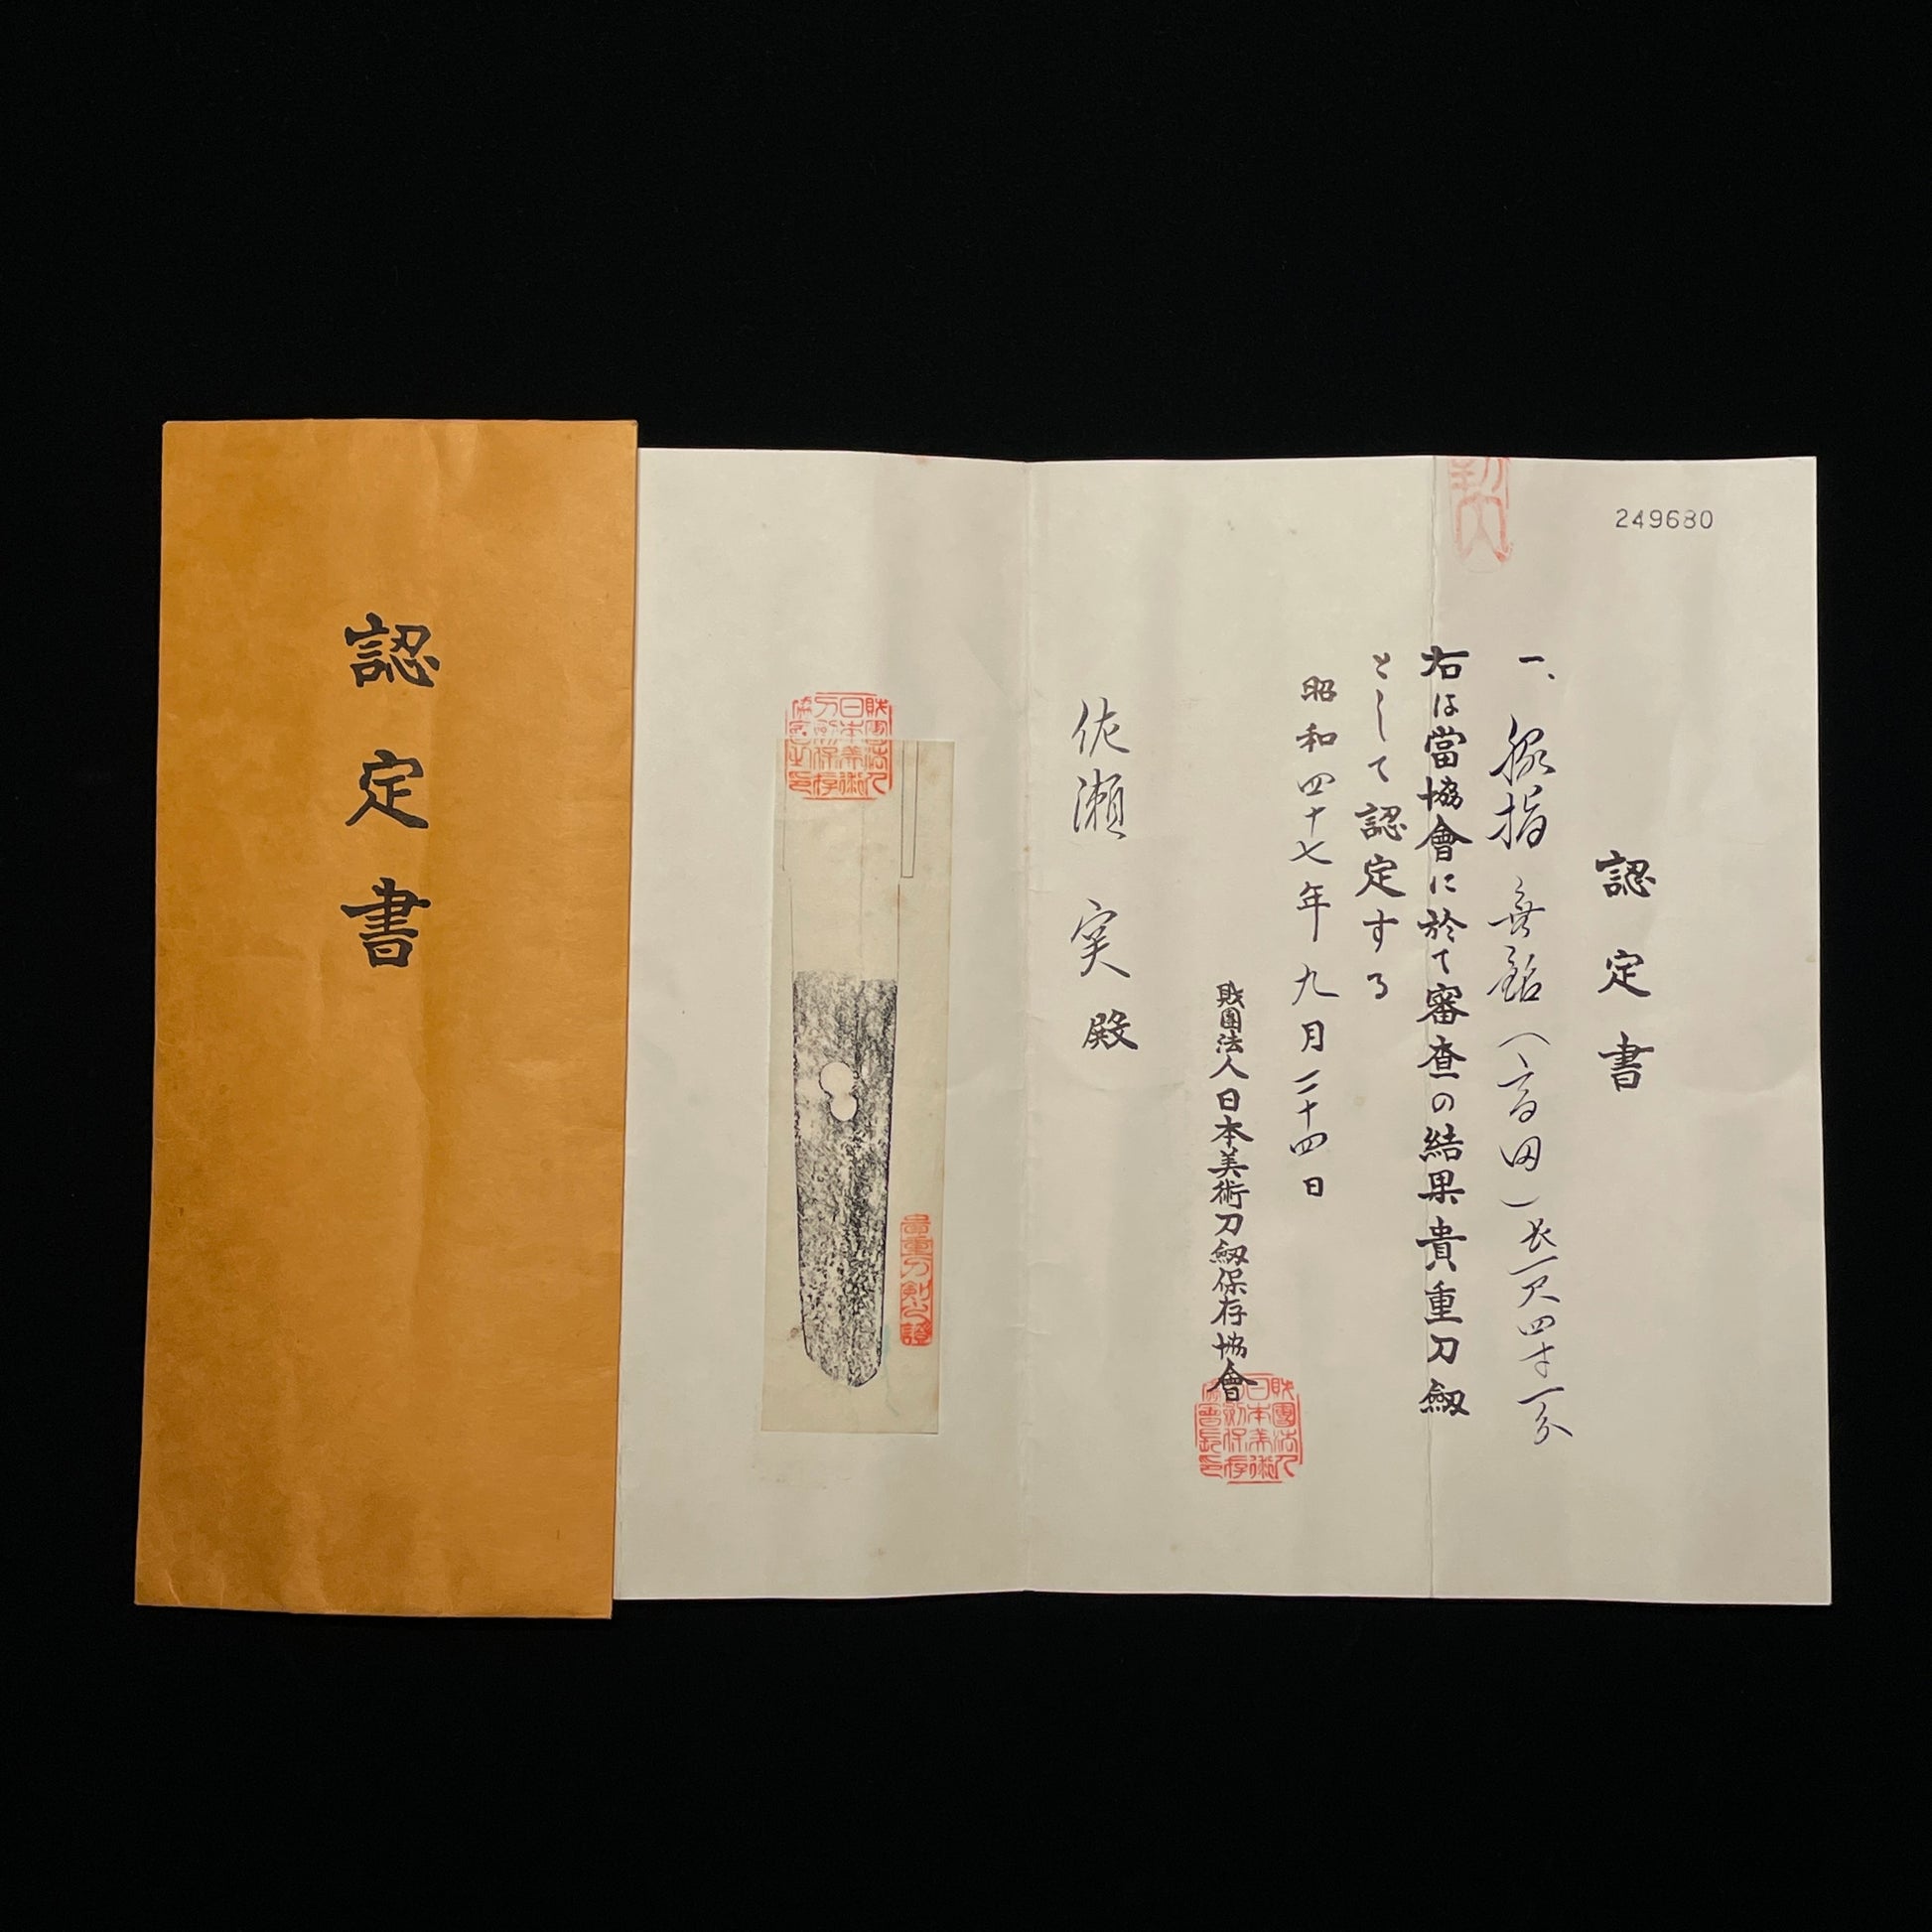 249680
認定書
一、脇指 無銘(高田)長一尺四寸一分
右は當協會に於て審査の結果貴重刀劔
として認定する
昭和四十七年九月二十四日
財團法人日本美術刀劔保存協會
佐瀬 実 殿
貴重刀剣之證
認定書